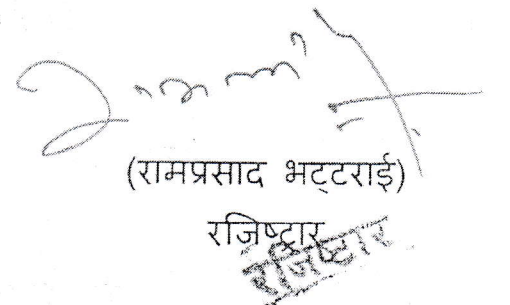 (रामप्रसाद भट्टराई)
रजिष्ट्रार
रजिष्ट्रार